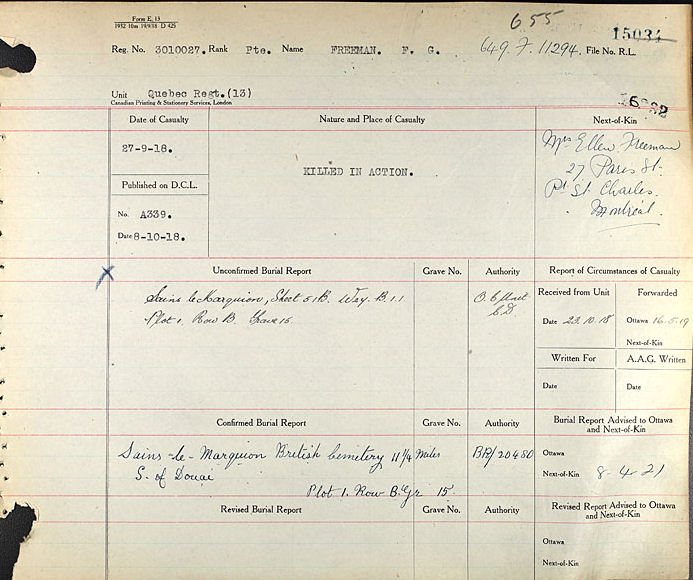 Form E. 13
1932 10m 19/9/18 D 425
655
15034
Reg. No. 3010027. Rank Pte. Name FREEMAN. F. G. 649. F. 11294. File No. R.L.
Unit Quebec Regt.(13)
Canadian Printing & Stationery Services, London
Date of Casualty
Nature and Place of Casualty
Next-of-Kin
27-9-18.
KILLED IN ACTION.
Mrs Ellen Freeman
27 Paris St.
Pt St. Charles.
Montreal.
Published on D.C.L.
No. A339.
Date 8-10-18.
X
Unconfirmed Burial Report
Grave No.
Authority
Report of Circumstances of Casualty
Sains le Marquion, Sheet 51B. B.1.1
Plot 1. Row B. Grave 15.
O.C. Unit
Received from Unit
Forwarded
Date 23.10.18
Ottawa 16.5.19
Next-of-Kin
Written For
A.A.G. Written
Date
Date
Confirmed Burial Report
Grave No.
Authority
Burial Report Advised to Ottawa
and Next-of-Kin
Sains-le-Marquion British Cemetery 11 1/4 Miles
S. of Douai
Plot 1. Row B. Gr 15.
BR/20480
Ottawa
Next-of-Kin 8-4-21
Revised Burial Report
Grave No.
Authority
Revised Report Advised to Ottawa
and Next-of-Kin
Ottawa
Next-of-Kin